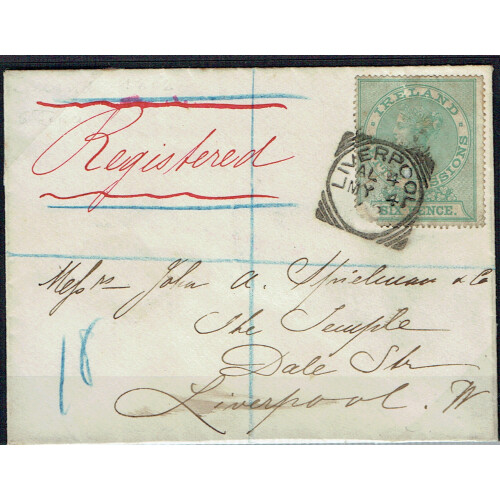 Registered
IRELAND
SIX PENCE.
LIVERPOOL
AL 4
MY 4
Messrs John A. Spielman & Co
The Temple
Dale Str
Liverpool. W
18